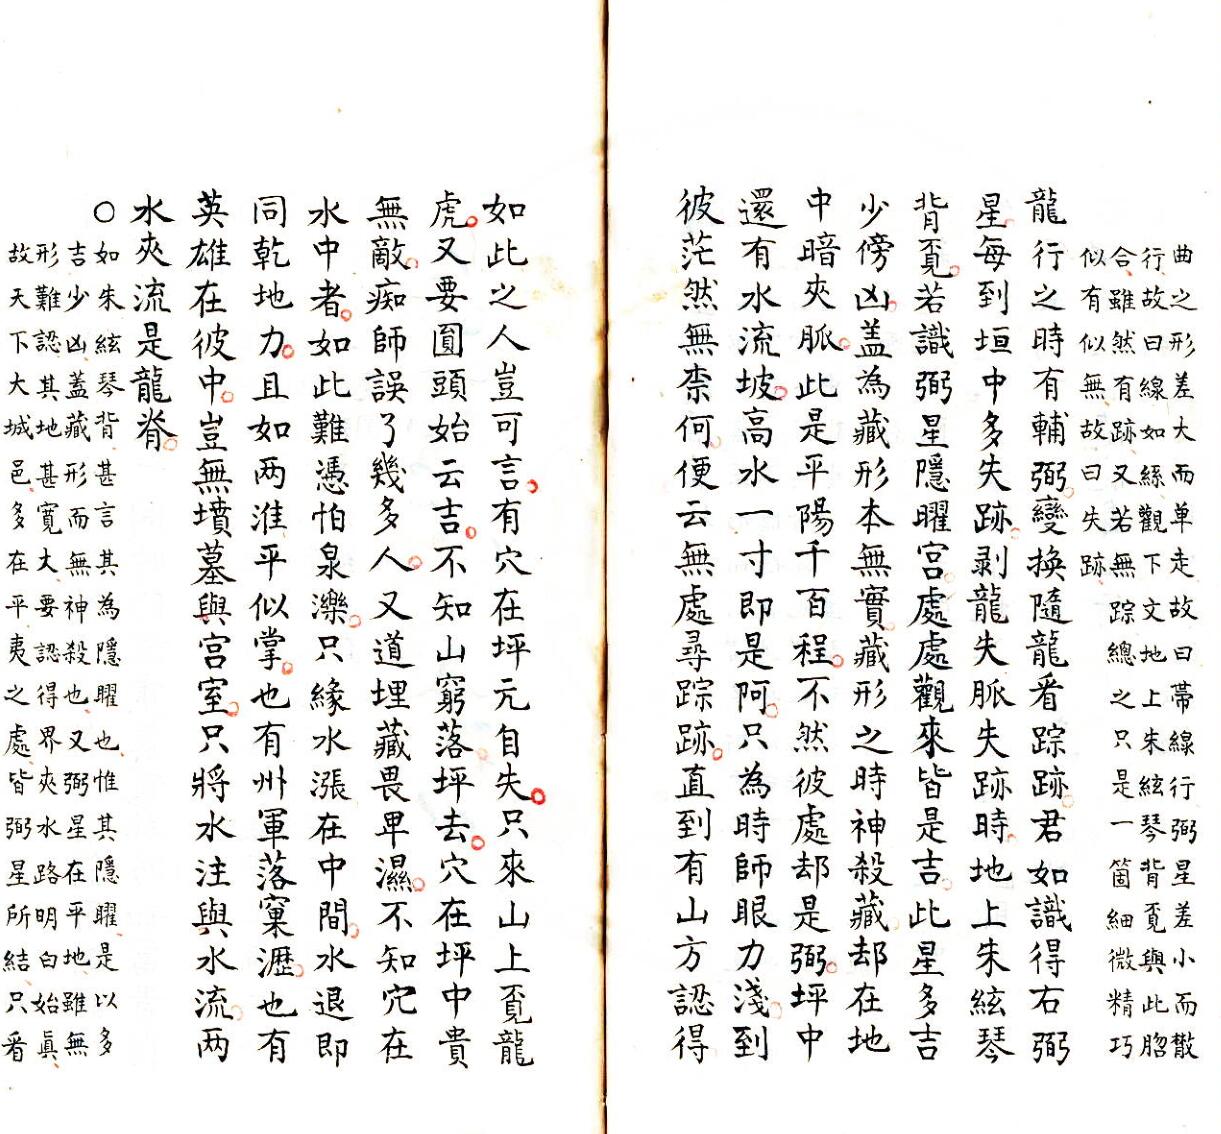 曲之形差大而单走故曰蔕線行弼星差小而散
行故曰線如絲觀下文地上朱絃琴背覔與此脗
合雖然有跡又若無踪總之只是一箇細微精巧
似有似無故曰失跡
龍行之時有輔弼變換隨龍看踪跡君如識得右弼
星每到垣中多失跡剥龍失脈失跡時地上朱絃琴
背覔若識弼星隱曜宫處處觀來皆是吉此星多吉
少傍凶盖為藏形本無實藏形之時神殺藏却在地
中暗夾脈此是平陽千百程不然彼處却是弼坪中
還有水流坡高水一寸即是阿只為時師眼力淺到
彼茫然無柰何便云無處尋踪跡直到有山方認得
如此之人豈可言有穴在坪元自失只來山上覔龍
虎又要圓頭始云吉不知山窮落坪去穴在坪中貴
無敵痴師誤了幾多人又道埋藏畏卑濕不知穴在
水中者如此難憑怕泉濼只緣水漲在中間水退即
同乾地力且如两淮平似掌也有州軍落窠瀝也有
英雄在彼中豈無墳墓與宫室只將水注與水流两
水夾流是龍脊
○如朱絃琴背甚言其為隱曜也惟其隱曜是以多
吉少凶蓋藏形而無神殺也又弼星在平地雖無
形難認其地甚寬大要認得界夾水路明白始眞
故天下大城邑多在平夷之處皆弼星所結只看